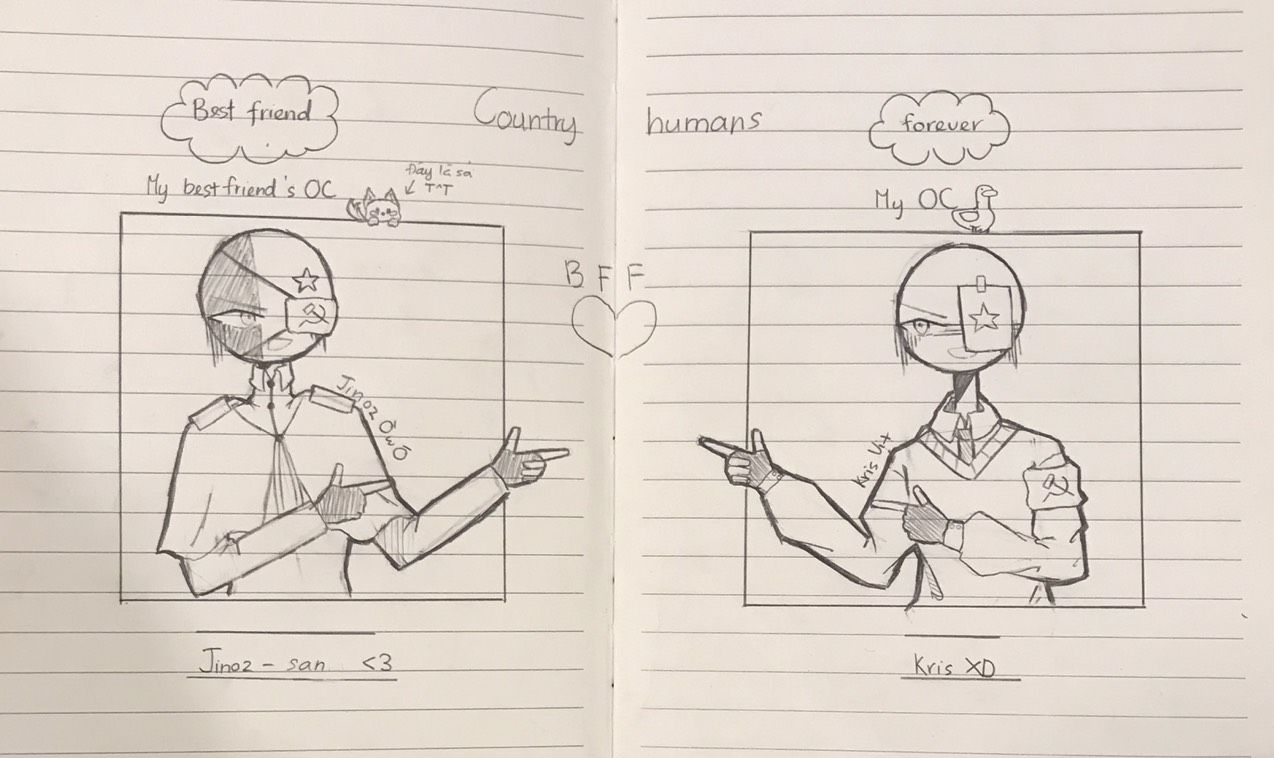 Best friend
Country humans
forever
My best friend's OC
Đây là sả
T^T
My OC
B F F
Jinoz ÒwÓ
Kris Vịt
Jinoz - san <3
Kris XD